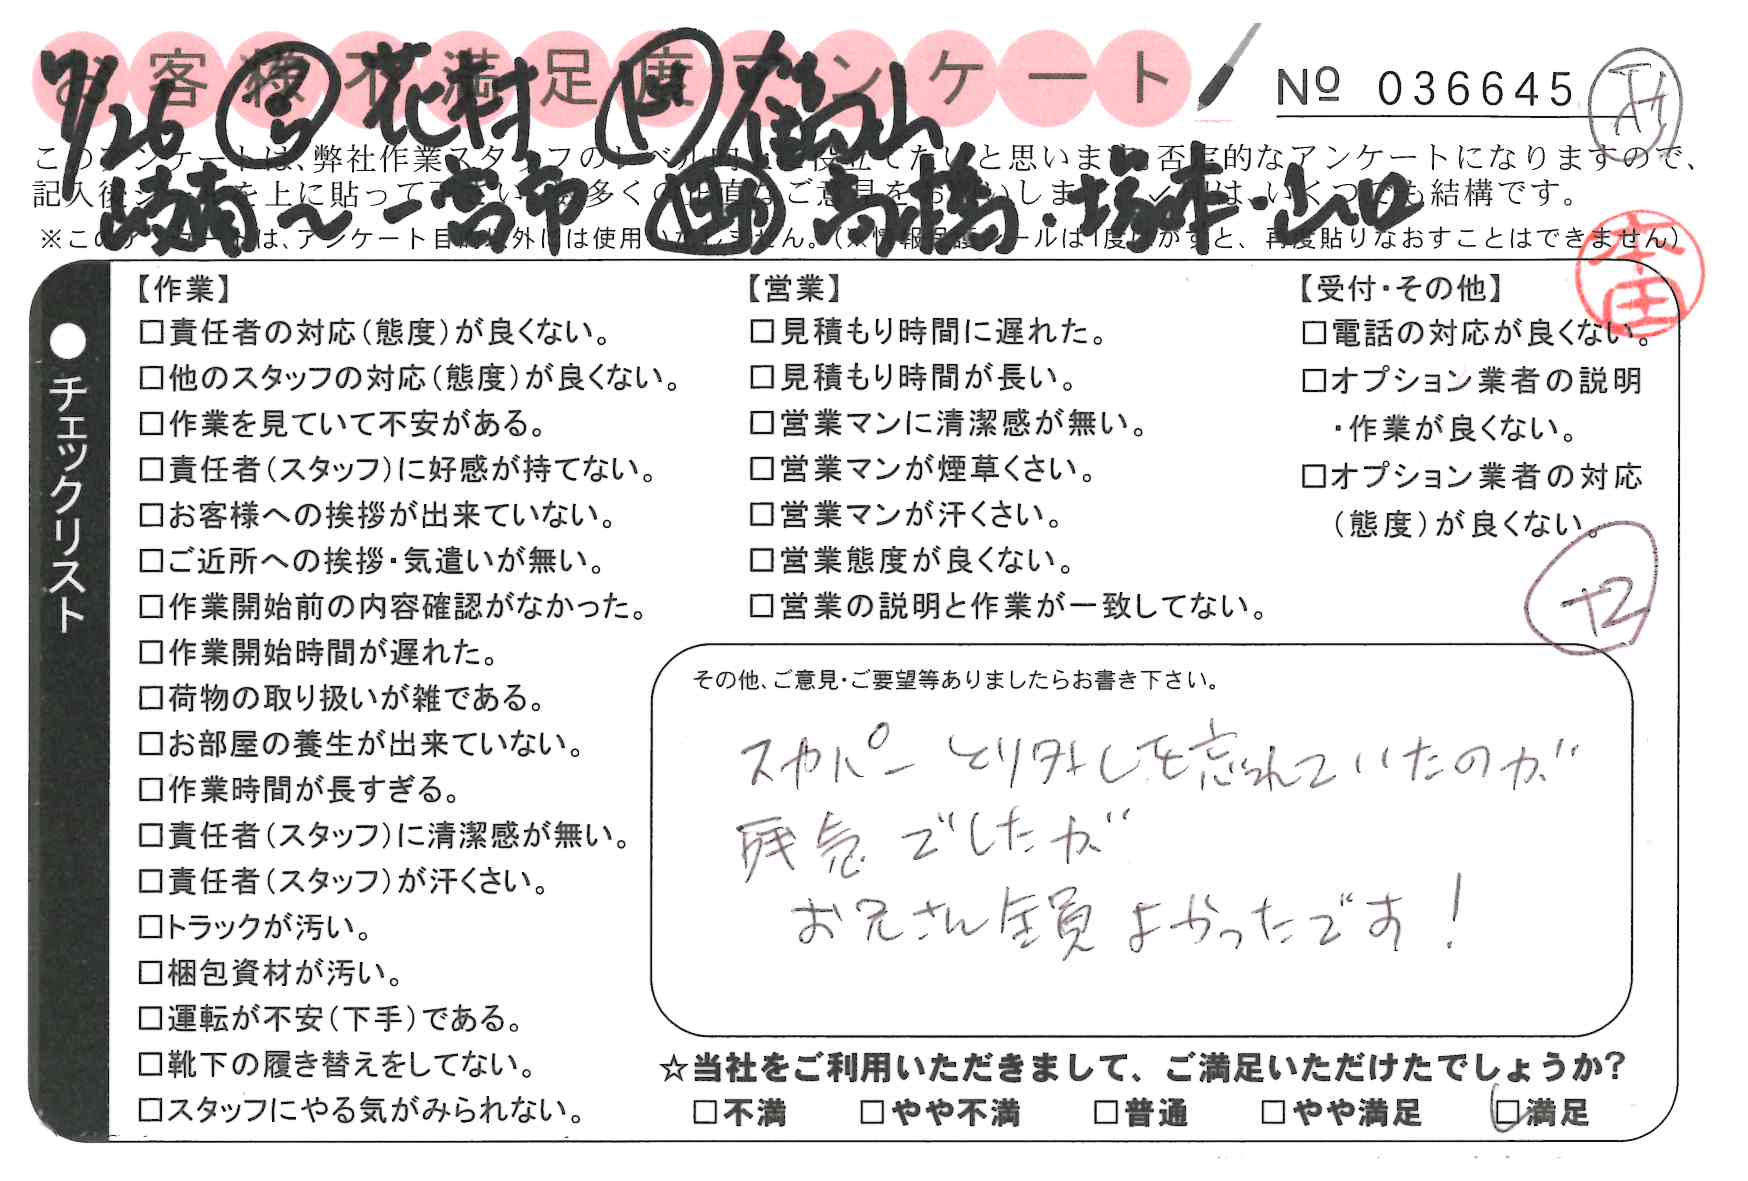 お客様不満足度アンケート
No 036645
7/26 営 花村 ド 鶴山
このアンケートは、弊社作業スタッフのレベル向上に役立てたいと思います。否定的なアンケートになりますので、
記入後シールを上に貼って下さい。数多くの正直なご意見をお願いします。✓印は、いくつでも結構です。
～一宮市 助 高橋・塚本・山口
※このアンケートは、アンケート目的以外には使用いたしません。(※情報保護シールは1度はがすと、再度貼りなおすことはできません)
本田
●チェックリスト
【作業】
□責任者の対応(態度)が良くない。
□他のスタッフの対応(態度)が良くない。
□作業を見ていて不安がある。
□責任者(スタッフ)に好感が持てない。
□お客様への挨拶が出来ていない。
□ご近所への挨拶・気遣いが無い。
□作業開始前の内容確認がなかった。
□作業開始時間が遅れた。
□荷物の取り扱いが雑である。
□お部屋の養生が出来ていない。
□作業時間が長すぎる。
□責任者(スタッフ)に清潔感が無い。
□責任者(スタッフ)が汗くさい。
□トラックが汚い。
□梱包資材が汚い。
□運転が不安(下手)である。
□靴下の履き替えをしてない。
□スタッフにやる気がみられない。
【営業】
□見積もり時間に遅れた。
□見積もり時間が長い。
□営業マンに清潔感が無い。
□営業マンが煙草くさい。
□営業マンが汗くさい。
□営業態度が良くない。
□営業の説明と作業が一致してない。
【受付・その他】
□電話の対応が良くない。
□オプション業者の説明
・作業が良くない。
□オプション業者の対応
(態度)が良くない。
その他、ご意見・ご要望等ありましたらお書き下さい。
スカパーとり外しを忘れていたのが
残念でしたが
お兄さん全員よかったです!
☆当社をご利用いただきまして、ご満足いただけたでしょうか?
□不満 □やや不満 □普通 □やや満足 □満足